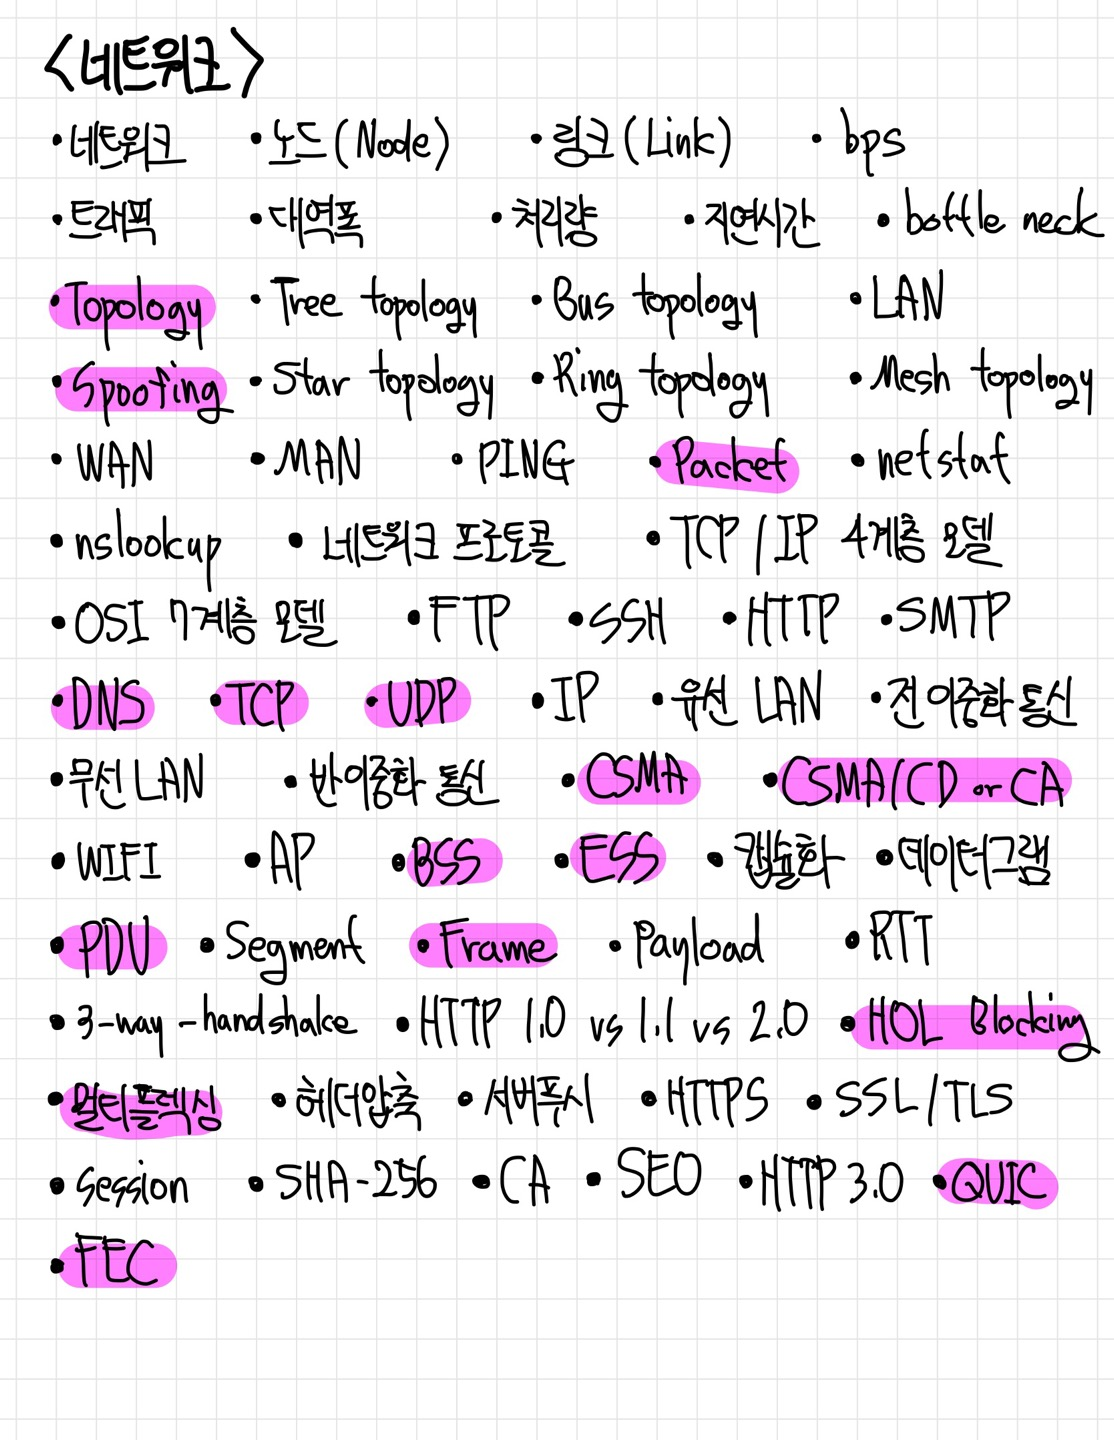 <네트워크>
• 네트워크 • 노드(Node) • 링크(Link) • bps
• 트래픽 • 대역폭 • 처리량 • 지연시간 • bottle neck
• Topology • Tree topology • Bus topology • LAN
• Spoofing • Star topology • Ring topology • Mesh topology
• WAN • MAN • PING • Packet • netstat
• nslookup • 네트워크 프로토콜 • TCP/IP 4계층 모델
• OSI 7계층 모델 • FTP • SSH • HTTP • SMTP
• DNS • TCP • UDP • IP • 유선 LAN • 전이중화 통신
• 무선 LAN • 반이중화 통신 • CSMA • CSMA/CD or CA
• WIFI • AP • BSS • ESS •캡슐화 • 데이터그램
• PDU • Segment • Frame • Payload • RTT
• 3-way-handshake • HTTP 1.0 vs 1.1 vs 2.0 • HOL Blocking
• 멀티플렉싱 • 헤더압축 • 서버푸시 • HTTPS • SSL/TLS
• Session • SHA-256 • CA • SEO • HTTP 3.0 • QUIC
• FEC